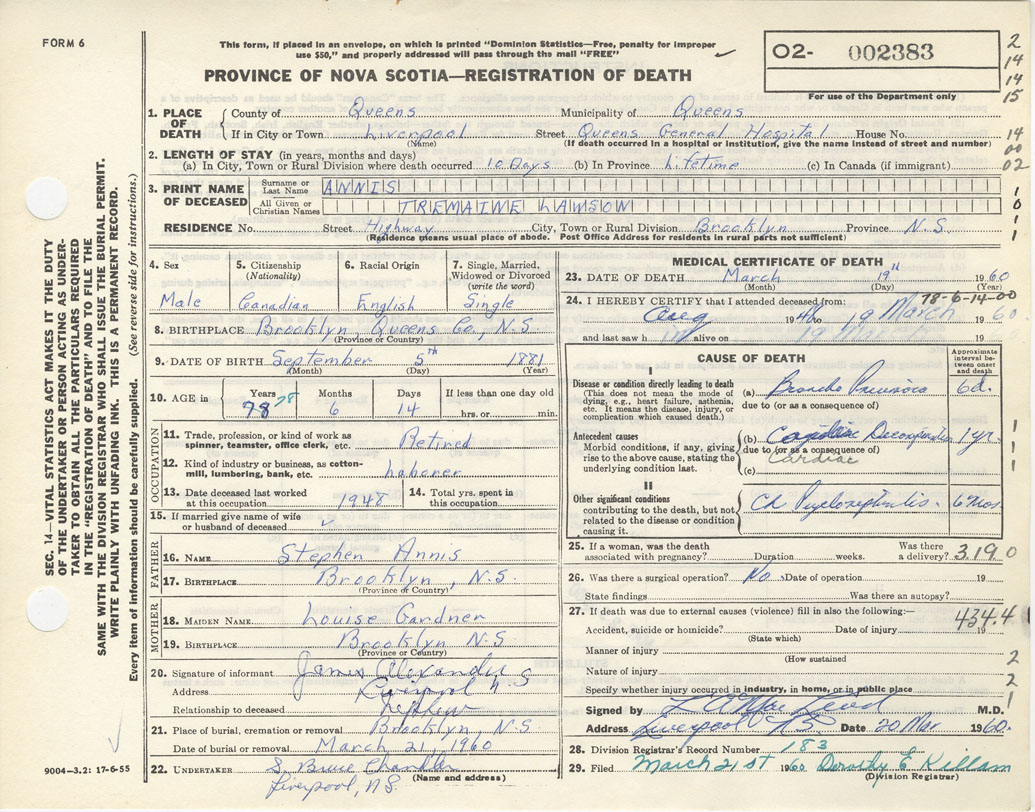 FORM 6
This form, if placed in an envelope, on which is printed "Dominion Statistics—Free, penalty for improper
use $50," and properly addressed will pass through the mail "FREE"
PROVINCE OF NOVA SCOTIA—REGISTRATION OF DEATH
O2- 002383
For use of the Department only
2
14
14
15
14
00
02
1
0
1
1
SEC. 14—VITAL STATISTICS ACT MAKES IT THE DUTY
OF THE UNDERTAKER OR PERSON ACTING AS UNDER-
TAKER TO OBTAIN ALL THE PARTICULARS REQUIRED
IN THE "REGISTRATION OF DEATH" AND TO FILE THE
SAME WITH THE DIVISION REGISTRAR WHO SHALL ISSUE THE BURIAL PERMIT.
WRITE PLAINLY WITH UNFADING INK. THIS IS A PERMANENT RECORD.
Every item of information should be carefully supplied. (See reverse side for instructions.)
1. PLACE OF DEATH County of Queens Municipality of Queens
If in City or Town Liverpool Street Queens General Hospital House No.
(Name) (If death occurred in a hospital or institution, give the name instead of street and number)
2. LENGTH OF STAY (in years, months and days)
(a) In City, Town or Rural Division where death occurred 10 Days (b) In Province Lifetime (c) In Canada (if immigrant)
3. PRINT NAME OF DECEASED Surname or Last Name ANNIS
All Given or Christian Names TREMAINE LAWSON
RESIDENCE No. Street Highway City, Town or Rural Division Brooklyn Province N.S.
(Residence means usual place of abode. Post Office Address for residents in rural parts not sufficient)
4. Sex Male
5. Citizenship (Nationality) Canadian
6. Racial Origin English
7. Single, Married, Widowed or Divorced (write the word) Single
8. BIRTHPLACE Brooklyn Queens Co., N.S
(Province or Country)
9. DATE OF BIRTH September 5th 1881
(Month) (Day) (Year)
10. AGE in Years 78 78 Months 6 Days 14 If less than one day hrs. or min.
OCCUPATION
11. Trade, profession, or kind of work as spinner, teamster, office clerk, etc. Retired
12. Kind of industry or business, as cotton-mill, lumbering, bank, etc. Laborer
13. Date deceased last worked at this occupation 1948 14. Total yrs. spent in this occupation
15. If married give name of wife or husband of deceased ✓
FATHER
16. NAME Stephen Annis
17. BIRTHPLACE Brooklyn, N.S.
(Province or Country)
MOTHER
18. MAIDEN NAME Louise Gardner
19. BIRTHPLACE Brooklyn N.S
(Province or Country)
20. Signature of informant James Alexander
Address Liverpool N.S
Relationship to deceased Nephew
21. Place of burial, cremation or removal Brooklyn N.S
Date of burial or removal March 21, 1960
22. UNDERTAKER S. Bruce Chandler
(Name and address)
Liverpool, N.S.
9004-3.2: 17-6-55
MEDICAL CERTIFICATE OF DEATH
23. DATE OF DEATH March 19th 1960
(Month) (Day) (Year)
78-6-14-00
24. I HEREBY CERTIFY that I attended deceased from:
Aug 19 to 19 March 1960.
and last saw h alive on 19 March 19
CAUSE OF DEATH
Approximate interval between onset and death
I
Disease or condition directly leading to death
(This does not mean the mode of dying, e.g., heart failure, asthenia, etc. It means the disease, injury, or complication which caused death.)
(a) Broncho Pneumonia 6d.
due to (or as a consequence of)
Antecedent causes
Morbid conditions, if any, giving rise to the above cause, stating the underlying condition last.
(b) Cardiac Decompensation 1 yr.
due to (or as a consequence of)
Cardiac
(c)
II
Other significant conditions
contributing to the death, but not related to the disease or condition causing it.
Ch Pyelonephritis. 6 mos
1
1
1
25. If a woman, was the death associated with pregnancy? Duration weeks. Was there a delivery? 3190
26. Was there a surgical operation? No. Date of operation 19
State findings Was there an autopsy?
27. If death was due to external causes (violence) fill in also the following:—
434.4
Accident, suicide or homicide? Date of injury 19
(State which)
Manner of injury
(How sustained
Nature of injury
Specify whether injury occurred in industry, in home, or in public place
2
2
1
Signed by M.D.
Address Liverpool NS Date 20 Mar 1960.
28. Division Registrar's Record Number 183
29. Filed March 21st 1960 Dorothy E Killam
(Division Registrar)